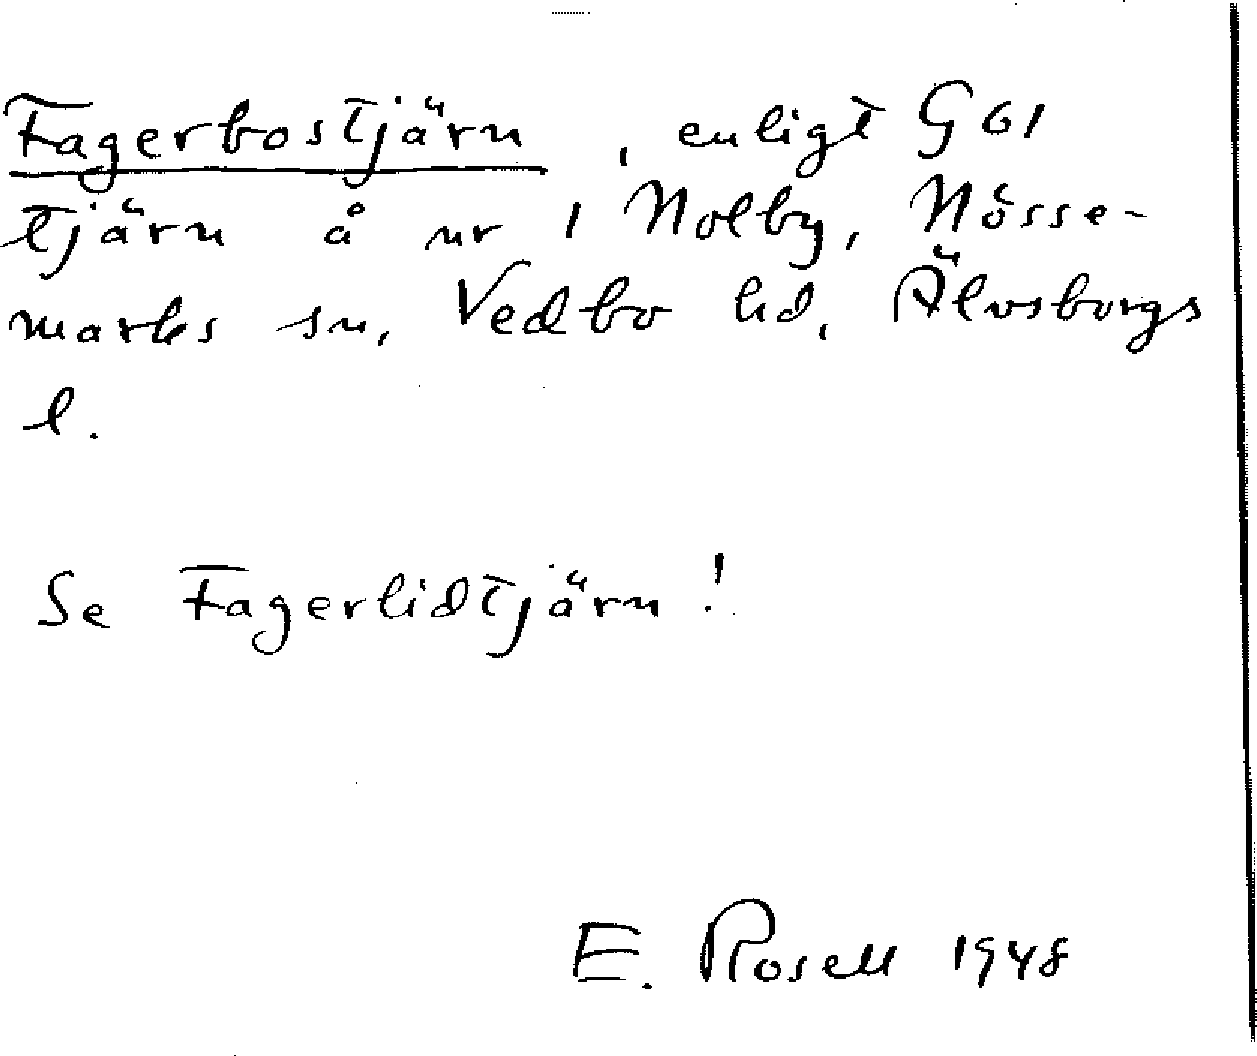 Fagerbostjärn, enligt G61
tjärn å nr 1 Nolby, Nösse-
marks sn, Vedbo hd, Älvsborgs
l.
Se Fagerlidtjärn!
E. Rosell 1948